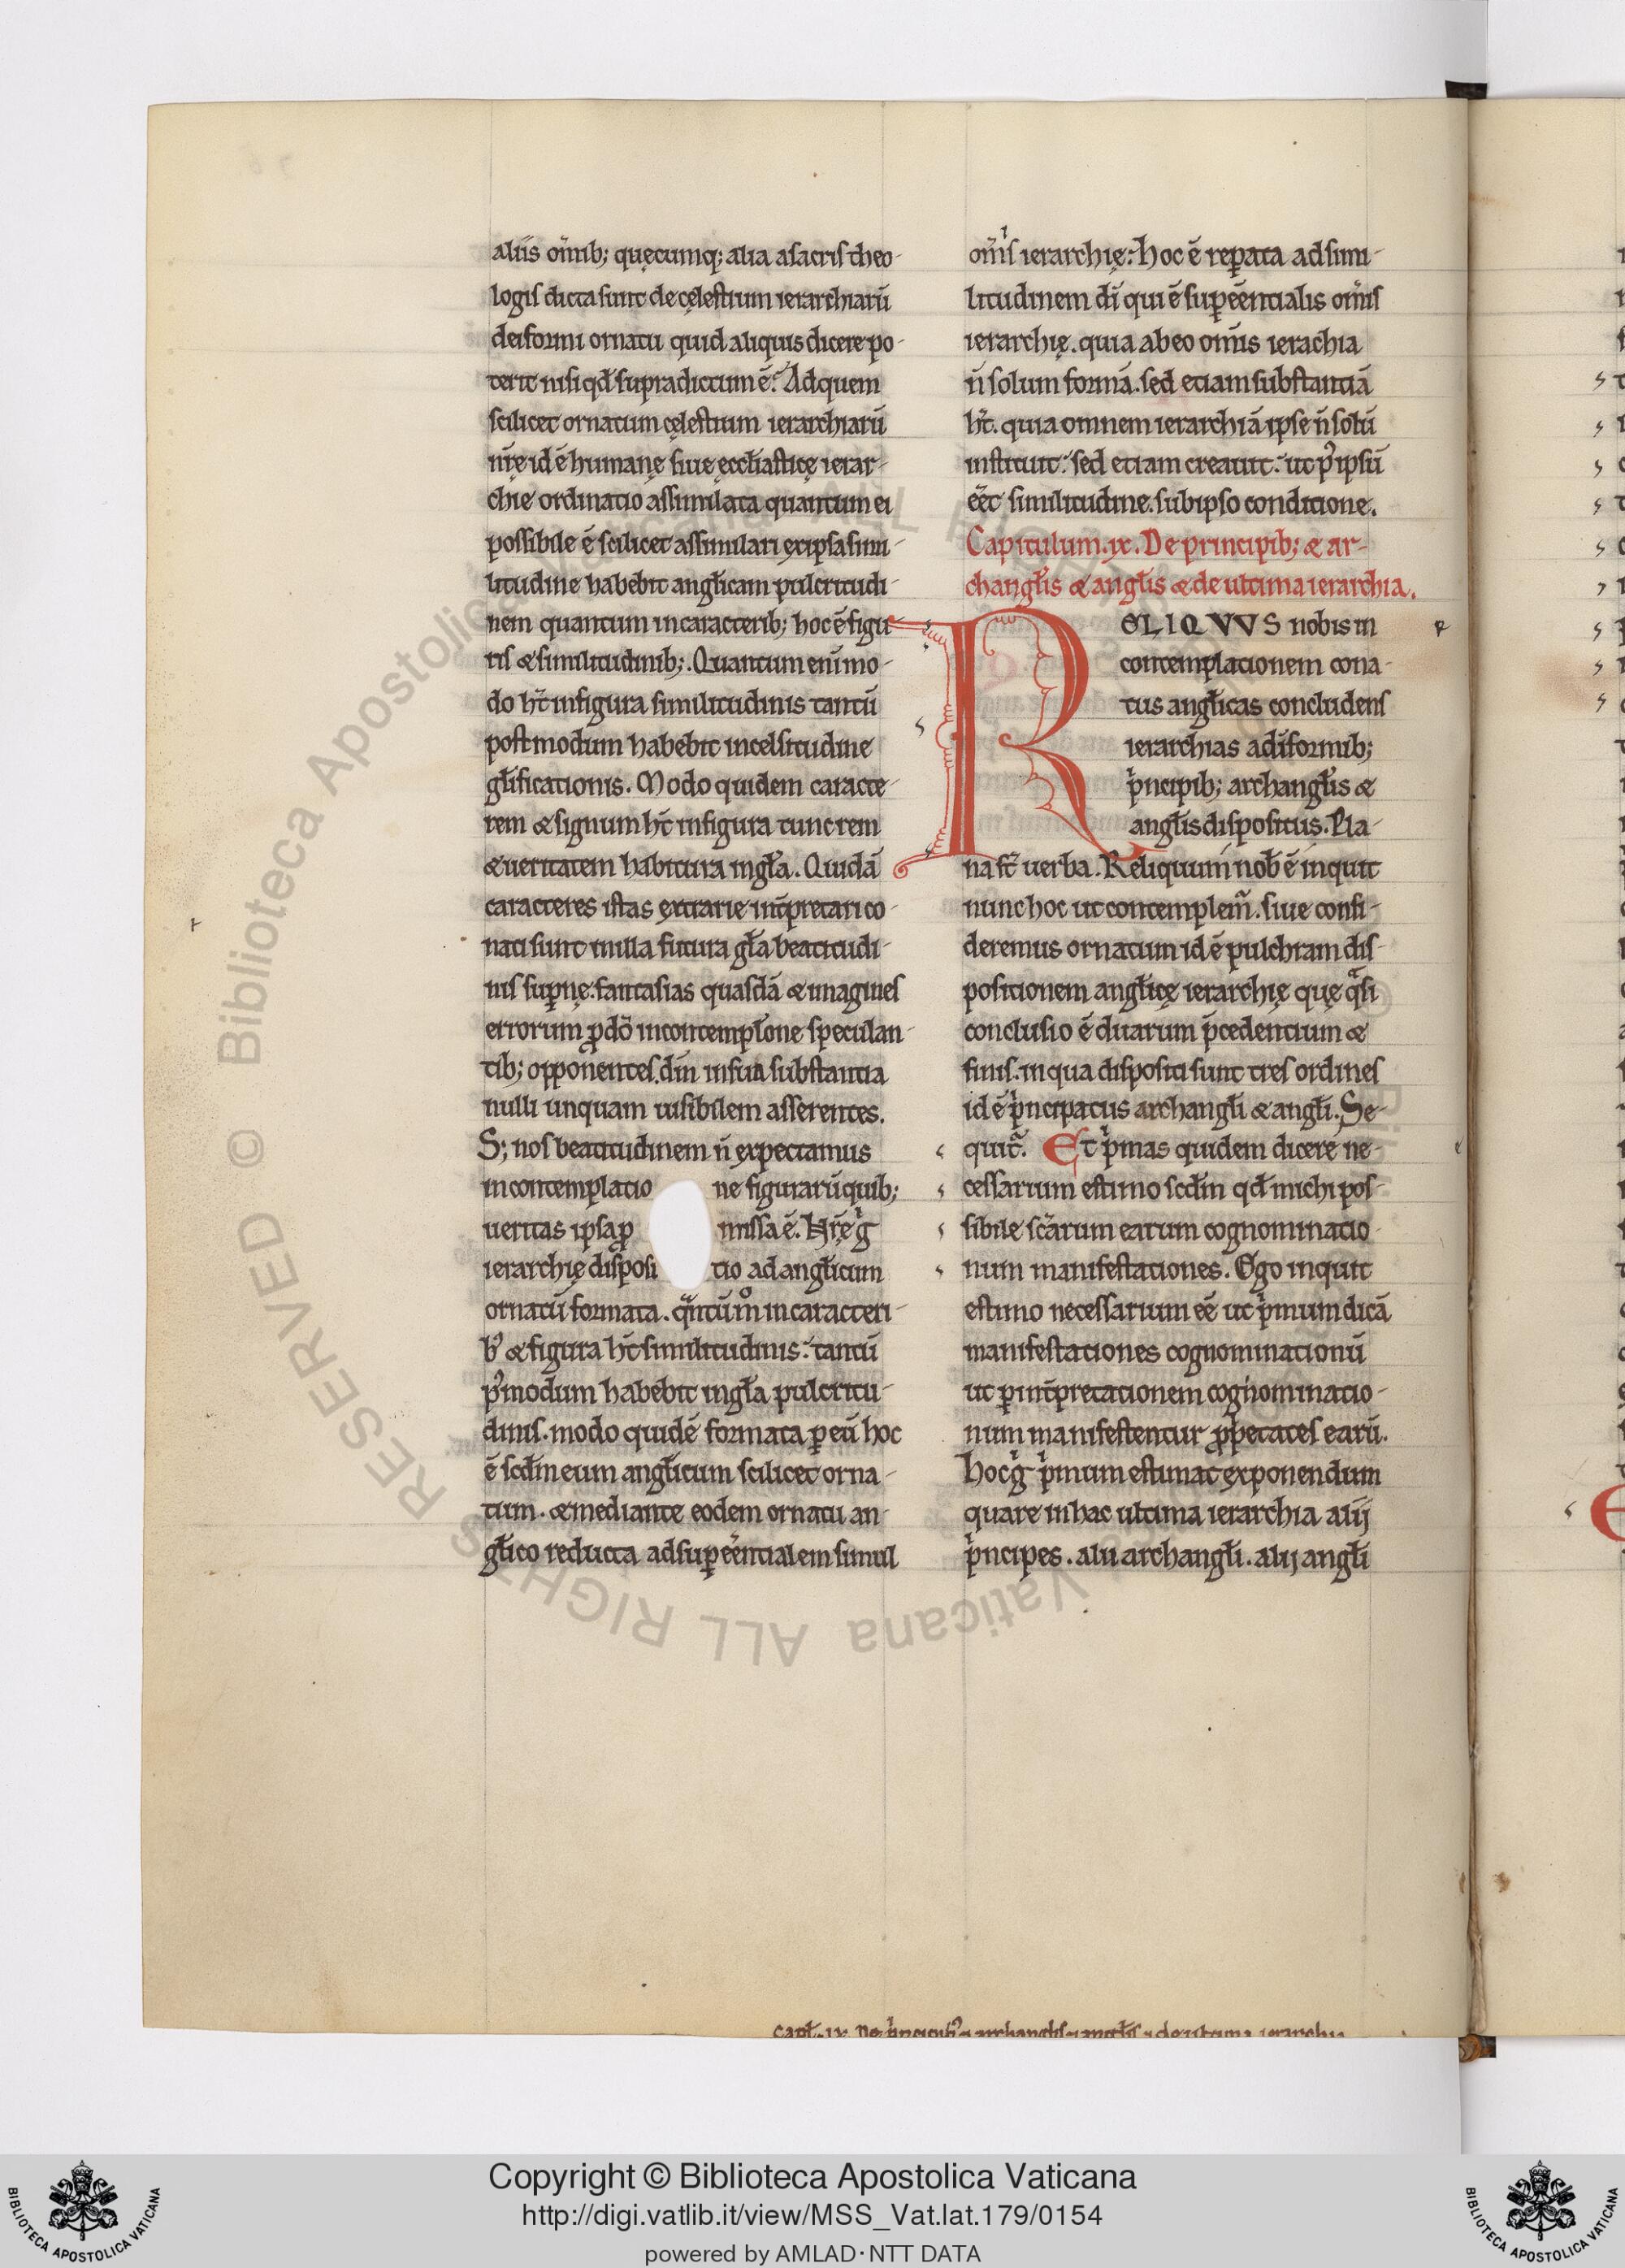 aliis om̄ib; quęcumq; alia a sacris theo-
logis dicta sunt de cęlestium ierarchiarū
deiformi ornatu quid aliquis dicere po-
terit nisi qđ supradictum ē. Ad quem
scilicet ornatum cęlestium ierarchiarū
nr̄ę id ē humanę siue ęccłiasticę ierar-
chię ordinatio assimilata quantum ei
possibile ē scilicet assimilari ex ipsa simi-
litudine habebit angłicam pulcritudi-
nem quantum in caracterib; hoc ē figu-
ris & similitudinib;. Quantum enī mo-
do hr̄t in figura similitudinis tantū
postmodum habebit in celsitudine
głificationis. Modo quidem caracte-
rem & signum hr̄t in figura tunc rem
& ueritatem habitura in gła. Quidā
caracteres istas extrarie int̄pretari co-
nati sunt in illa futura gła beatitudi-
nis sup̄nę. fantasias quasdā & imagines
errorum ꝓ dō in contempłone speculan-
tib; opponentes. dm̄ in sua substantia
nulli unquam uisibilem asserentes.
S; nos beatitudinem n̄ expectamus
in contemplatio ne figurarū quib;
ueritas ipsa ꝓ missa ē. Hr̄ę gͥ
ierarchię disposi tio ad angłicum
ornatū formata. qͣntū mͦ in caracteri-
b' & figura hr̄t similitudinis. tantū
p'modum habebit in gła pulcritu-
dinis. modo quidē formata ꝑ eū hoc
ē scđm eum angłicum scilicet orna-
tum. & mediante eodem ornatu an-
głico reducta ad suꝑēēntialem simul
om̄is ierarchię. hoc ē reꝑata ad simi-
litudinem dī qui ē suꝑēēntialis om̄is
ierarchię. quia ab eo om̄is ierachia
n̄ solum formā. sed etiam substantiā
hr̄t. quia omnem ierarchiā ipse n̄ solū
instituit. sed etiam creauit. ut p' ipsū
ēēt similitudine. sub ipso conditione.
Capitulum. ix. De principib; & ar-
changłis & angłis & de ultima ierarchia.
RELIQVVS nobis in
contemplationem cona-
tus angłicas concludens
ierarchias a diformib;
pͥncipib; archangłis &
angłis dispositus. Pla-
na st̄ uerba. Reliquum nob̄ ē inquit
nunc hoc ut contemplem̄. siue consi-
deremus ornatum id ē pulchram dis-
positionem angłicę ierarchię quę qͣsi
conclusio ē duarum p̄cedentium &
finis. in qua dispositi sunt tres ordines
id ē pͥncipatus archangłi & angłi. Se-
quit̄. Et pͥmas quidem dicere ne-
cessarium estimo scđm qđ michi pos-
sibile scārum earum cognominatio
num manifestationes. Ego inquit
estimo necessarium eē ut pͥmum dicā
manifestationes cognominationū
ut ꝑ int̄pretationem cognominatio-
num manifestentur ꝓpͥetates earū.
Hoc gͥ pͥmum estimat exponendum
quare in hac ultima ierarchia alij
pͥncipes. alii archangłi. alij angłi
Copyright © Biblioteca Apostolica Vaticana
http://digi.vatlib.it/view/MSS_Vat.lat.179/0154
powered by AMLAD·NTT DATA